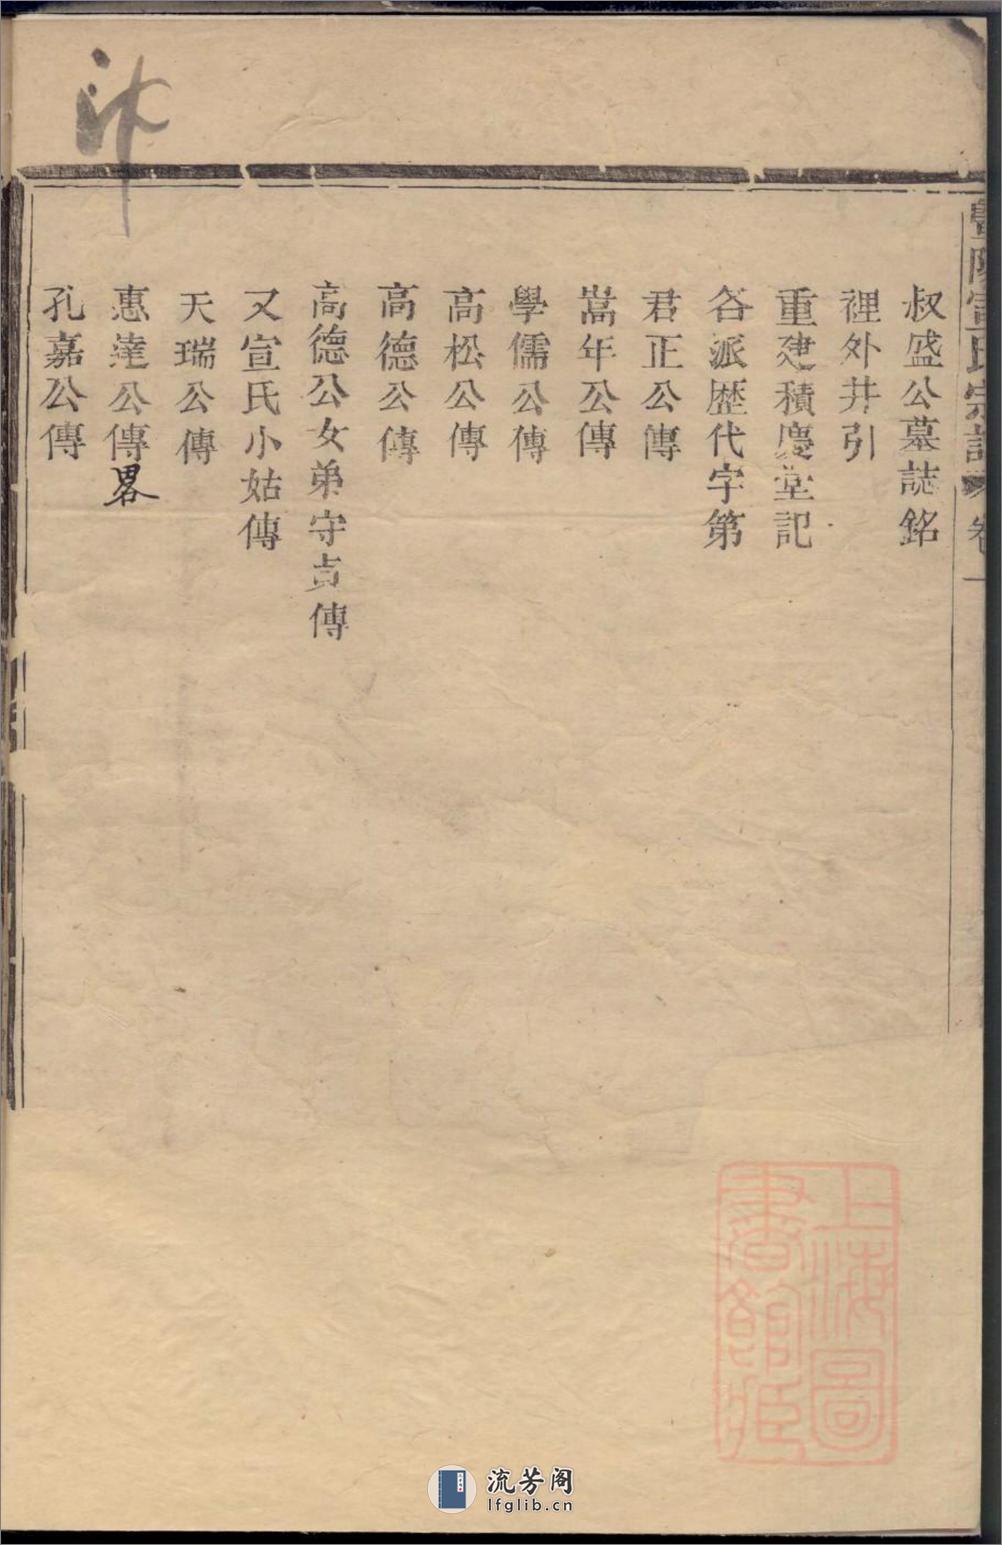 暨陽宣氏宗譜 卷一
叔盛公墓誌銘
裡外井引
重建積慶堂記
各派歷代字第
君正公傳
嵩年公傳
學儒公傳
高松公傳
高德公傳
高德公女弟守貞傳
又宣氏小姑傳
天瑞公傳
惠達公傳畧
孔嘉公傳
上海圖
書館
流芳阁
lfglib.cn